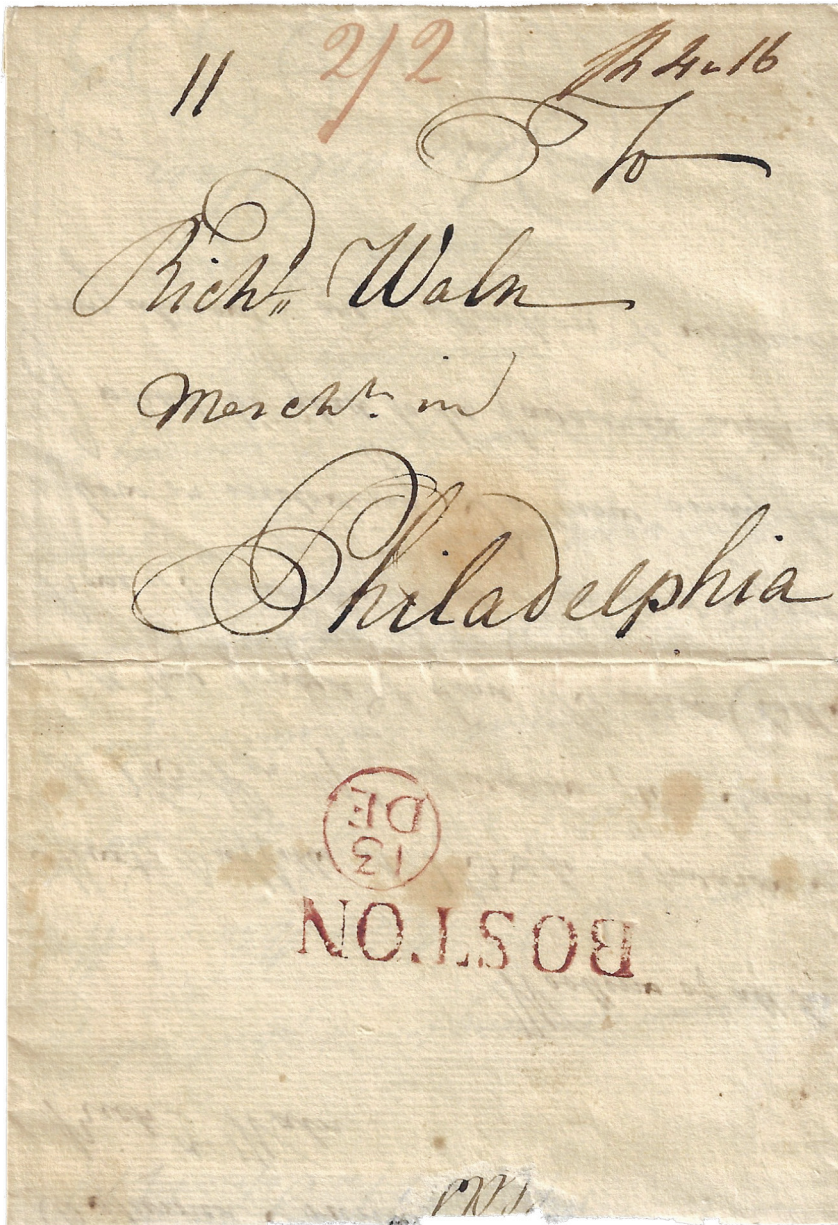 11 2/2 4.16
To
Richd Waln
Mercht. in
Philadelphia
13
DE
BOSTON